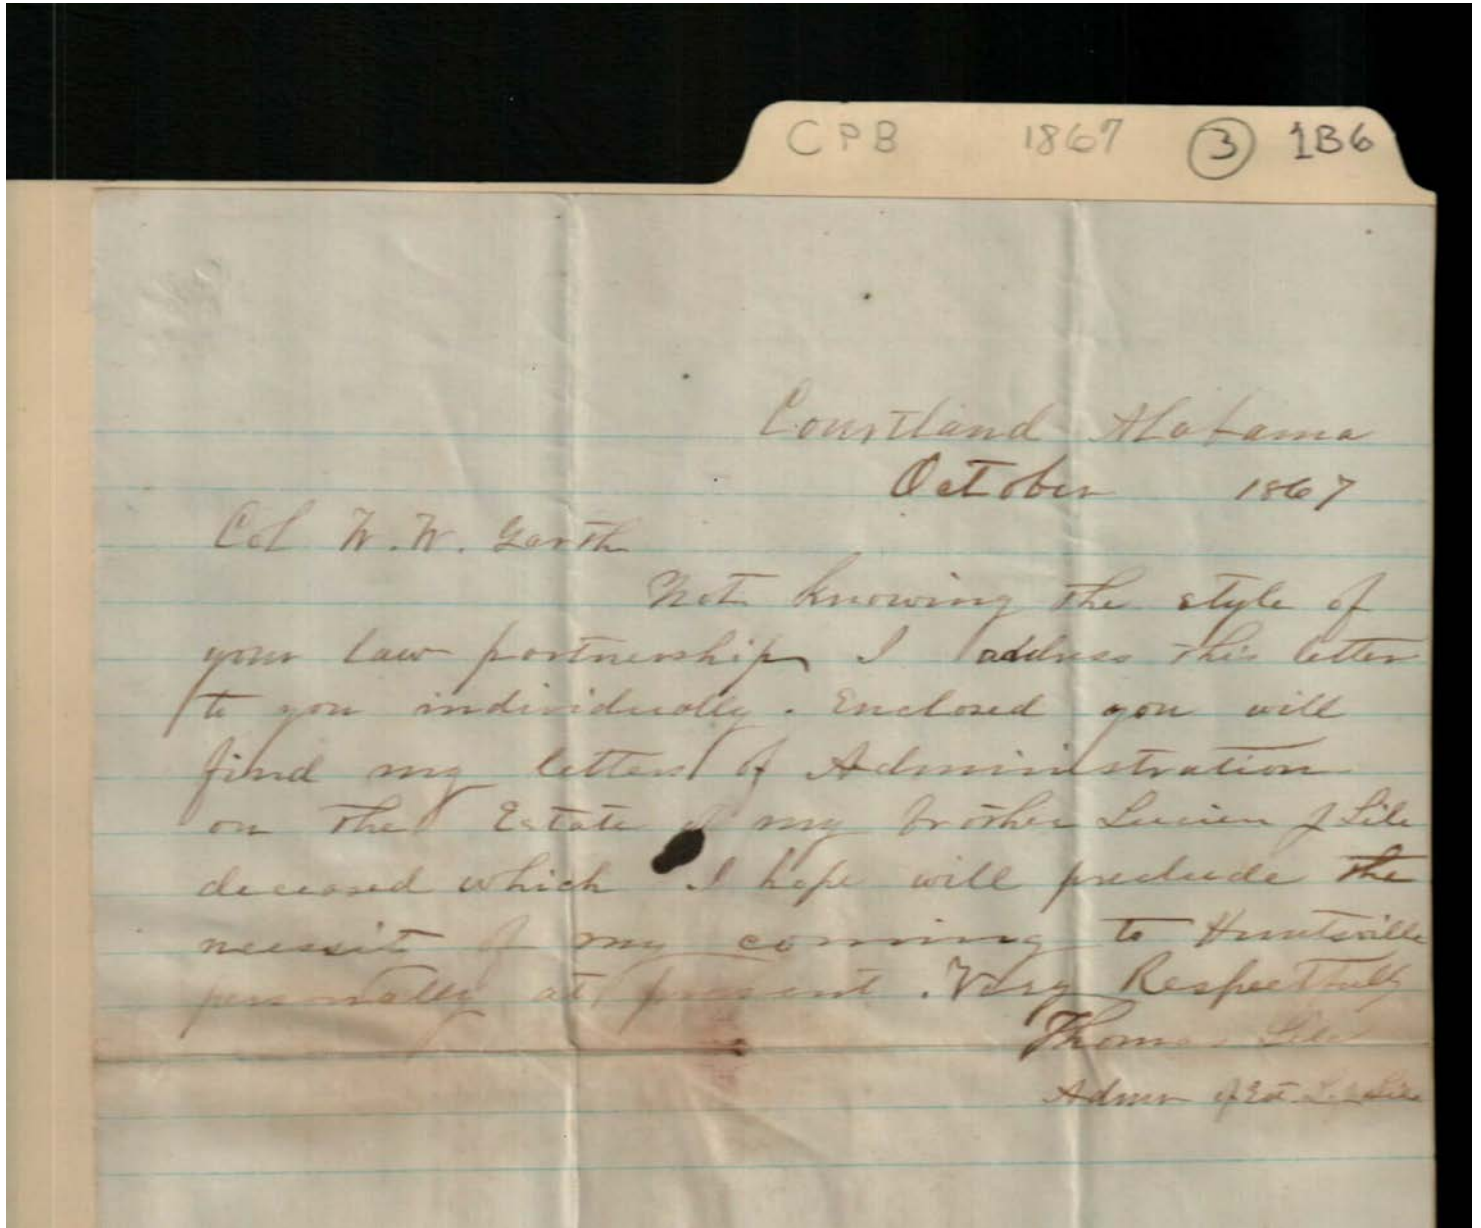 CPB 1867 3 1B6
Courtland Alabama
October 1867
Col W. W. Garth
Not knowing the style of
your law partnership I address this letter
to you individually. Enclosed you will
find my letters of Administration
on the Estate of my brother Lucien J Lile
deceased which I hope will preclude the
necessit of my coming to Huntsville
personally at present. Very Respectfully
Thomas Lile
Admr of Est L J Lile